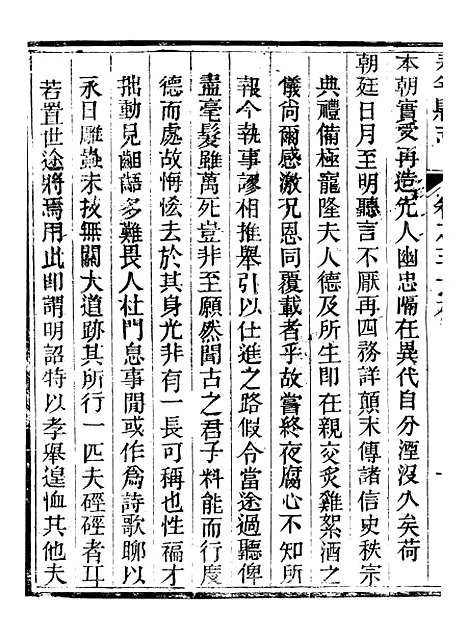 本朝實受再造先人幽忠隔在異代自分湮沒久矣荷
朝廷日月至明聽言不厭再四務詳顛末傳諸信史秩宗
典禮備極寵隆夫人德及所生即在親交炙雞絮酒之
儀尚爾感激况恩同覆載者乎故嘗終夜腐心不知所
報今執事謬相推舉引以仕進之路假令當途過聽俾
盡毫髮雖萬死豈非至願然聞古之君子料能而行度
德而處故悔恡去於其身光非有一長可稱也性福才
拙動見齟齬多難畏人杜門息事閒或作為詩歌聊以
永日雕蟲末技無關大道跡其所行一匹夫硜硜者耳
若置世途將焉用此即謂明詔特以孝舉遑恤其他夫